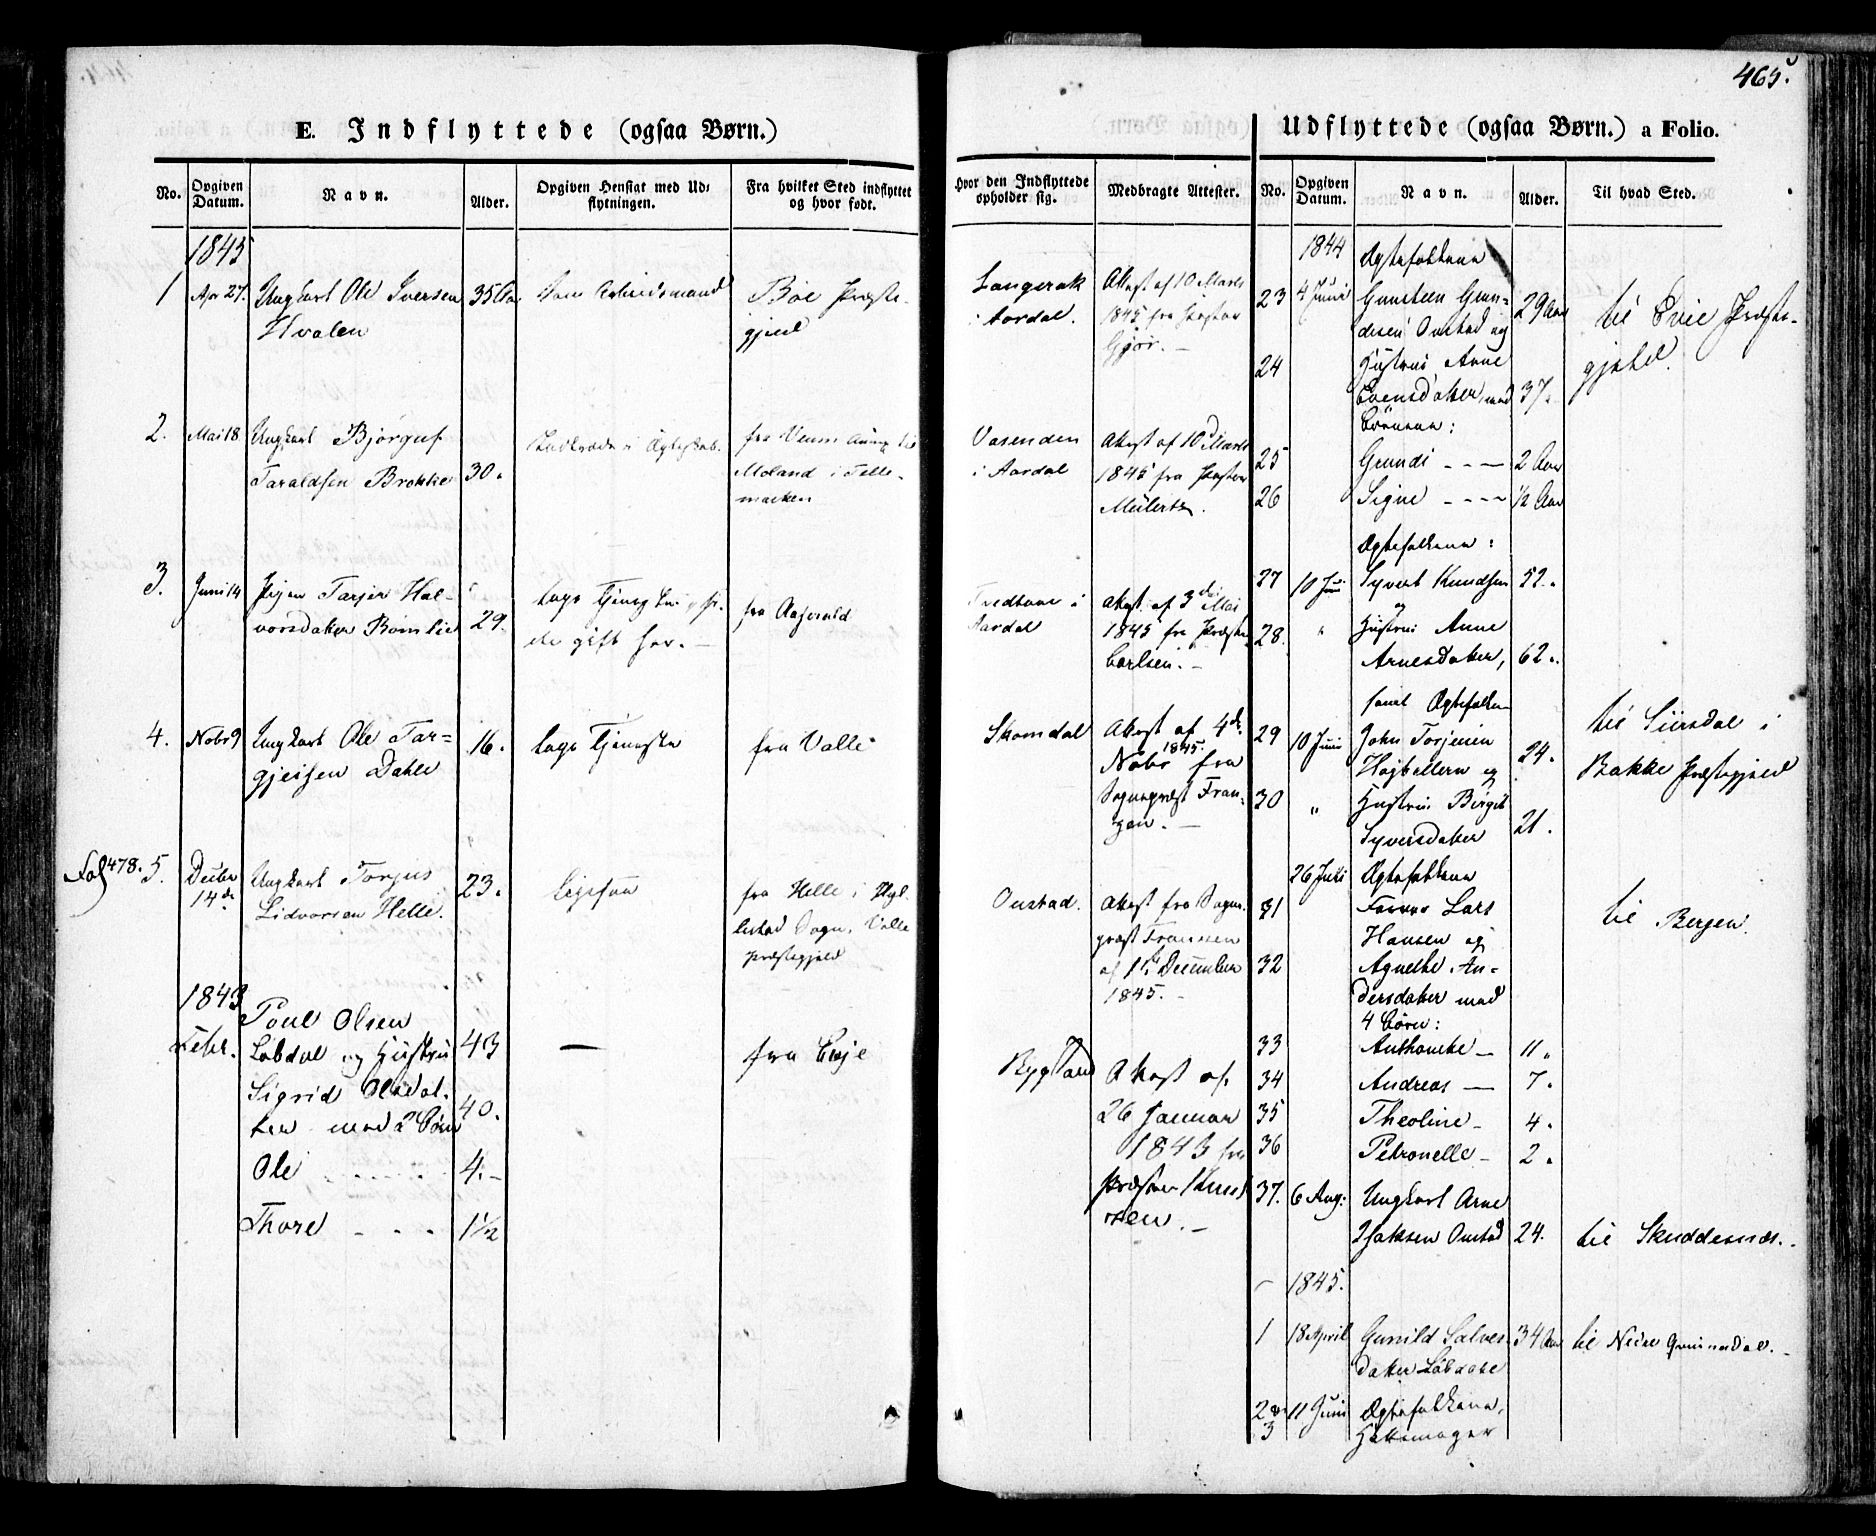 465.
E. Indflyttede (ogsaa Børn.)
No.
Opgiven Datum.
Navn.
Alder.
Opgiven Hensigt med Udflytningen.
Fra hvilket Sted indflyttet og hvor født.
Hvor den Indflyttede opholder sig.
Medbragte Attester.
1845
1
Apr 27.
Ungkarl Ole Iversen
Hvalen
35 Aar
som Arbeidsmand
Bøe Præste-
gjeld
Langerak
i Aardal.
Attest af 10 Marts
1845 fra
2.
Mai 18
Ungkarl Bjørguf
Taraldsen Brokke
30.
Indtræde i Ægteskab.
fra
Moland i Telle-
marken
Vasenden
i Aardal
Attest af 10 Marts
1845 fra Præsten
3.
Juni 14
Pigen Tarjer Hal-
vorsdatter Bomlie
29.
tage Tjeneste,
gift her.
fra
i
Aardal
Attest af 3die Mai
1845 fra Præsten
Carlsen.
4.
Nobr 9
Ungkarl Ole Tar-
gjeisen Dahle
16.
tage Tjeneste
fra Valle
Skomdal
Attest af 4de
Nobr 1845. fra
Sognepræst Fran-
zen.
Fol 478. 5.
Decbr
14de
Ungkarl Torjus
Lidvorsen Helle.
23.
ligesaa
fra Helle i Hyl-
lestad Sogn, Valle
Præstegjeld
Onstad.
Attest fra Sogne-
præst Franssen
af 1ste December
1845.
1843
Febr.
Poul Olsen
Løbdal og Hustru
43
Sigrid Olsdat-
ter med 2 Børn
40.
Ole
4.
Thore
1 1/2
—
fra Evje
Bygland
Attest af
26 Januar
1843 fra
Præsten Knud-
sen.
Udflyttede (ogsaa Børn.) a Folio.
No.
Opgiven Datum.
Navn.
Alder.
Til hvad Sted.
1844
Ægtefolkene
23
4 Juni
Gunsteen Gun-
dersen Onstad og
29 Aar
til Evie Præste-
gjeld.
24
Hustru Anne
Evensdatter, med
37.
Børnene:
25
Gundi
2 Aar
26
Signe
1/2 Aar
Ægtefolkene:
27
10 Juni
Syvert Knudsen
52.
og
28.
"
Hustru Anne
Arnesdatter,
62.
samt Ægtefolkene
29
10 Juni
John Torjesen
Højbellern og
24.
til Siirdal i
Bakke Præstegjeld
30
"
Hustru Birgit
Syversdatter
21.
26 Juli
Ægtefolkene
31
Lars
Hansen og
til Bergen.
32
Agnethe An-
dersdatter med
4 Børn:
33
11.
34
Andreas
7.
35
Theoline
4.
36
Petronelle
2.
37.
6 Aug:
Ungkarl Arne
Isaksen Onstad
24.
til Skuddesnæs.
1845.
1
18 April
Gunild Salves-
datter Løbdale
34 Aar
til Grimsdal.
2 &
3
11 Juni
Ægtefolkene,
Hattemager